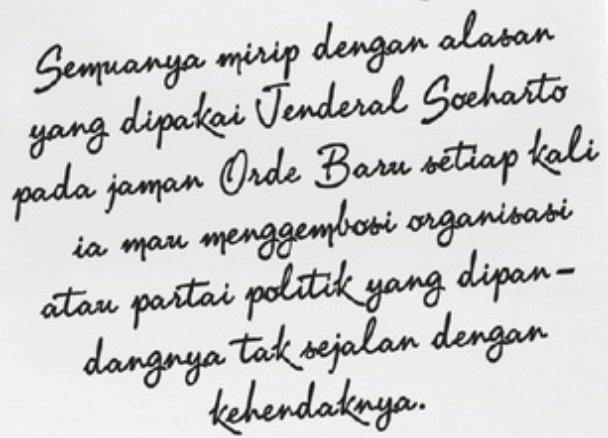 Semuanya mirip dengan alasan
yang dipakai Jenderal Soeharto
pada jaman Orde Baru setiap kali
ia mau menggembosi organisasi
atau partai politik yang dipan-
dangnya tak sejalan dengan
kehendaknya.